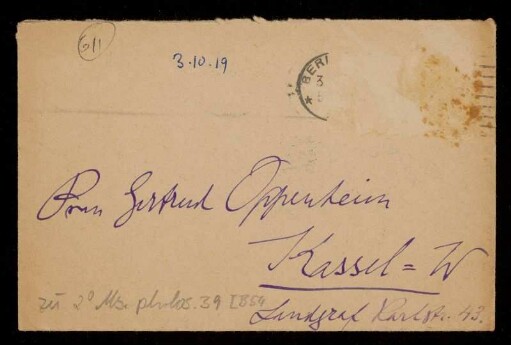 611
3.10.19
* BERL
3
Frau Gertrud Oppenheim
Kassel=W
Landgraf Karlstr. 43.
zu 2° Ms. philos. 39 [B54